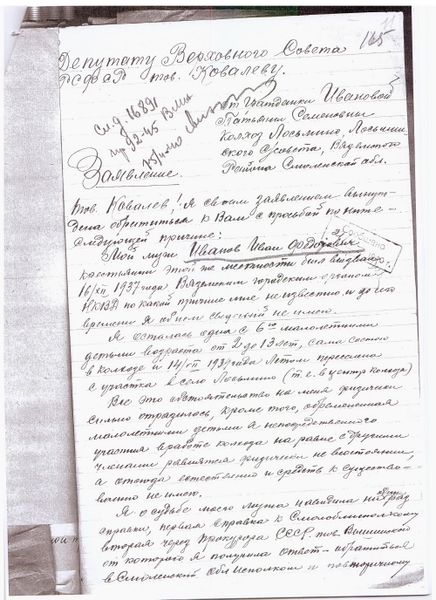 165
Депутату Верховного Совета
РСФСР тов. Ковалеву.
См. д. 16891
от гражданки Ивановой
Татьяны Семеновны
Колхоз Лосьмино, Лосьмин-
ского с/совета, Вяземского
Района Смоленской обл.
Заявление.
Тов. Ковалев! Я своим заявлением вынуж-
дена обратиться к Вам с просьбой по ниже-
следующей причине:
Мой муж Иванов Иван Федорович
крестьянин этой же местности был
16/XII 1937 года Вяземским городским органом
НКВД по какой причине мне не известно, и до сего
времени я о нем сведений не имею.
Я осталась одна с 6ю малолетними
детьми возраста от 2 до 13 лет, сама состою
в колхозе и 14/VII 1939 года Летом переселена
с участка в село Лосьмино (т.е. в центр колхоза)
Все это обстоятельство на меня физически
сильно отразилось, кроме того, обремененная
малолетними детьми а непосредственного
участия в работе колхоза на равне с другими
членами равняться физически не в состоянии,
а отсюда естественно и средств к существо-
ванию не имею.
Я о судьбе моего мужа наводила
справки, первая справка к
вторая через Прокурора СССР тов. Вышинского
от которого я получила ответ - обратиться
в Смоленский Облисполком и повторичному